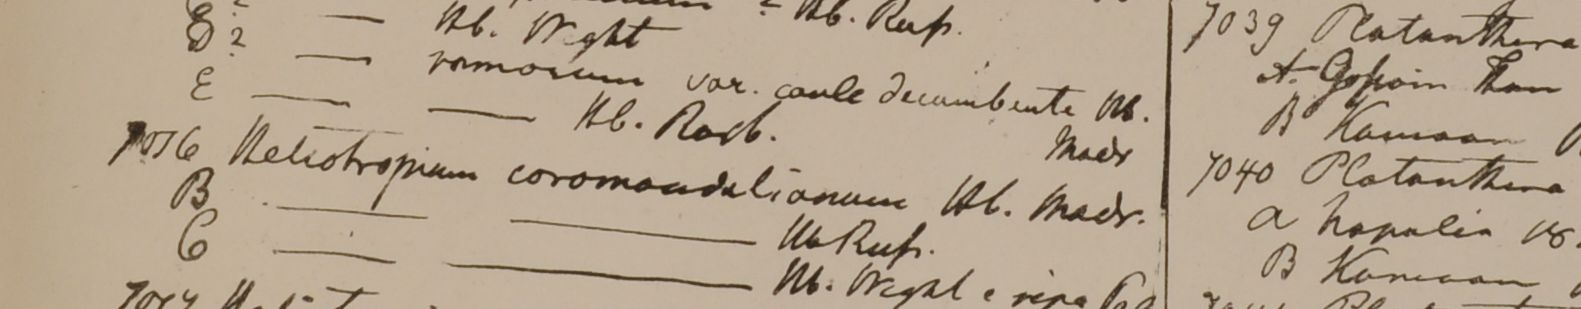 Hb. Rusp.
D? — Hb. Wight
— ramosum var. caule decumbente Hb. Madr
E — — Hb. Roxb.
7016 Heliotropium coromandelianum Hb. Madr.
B — — Hb Rusp.
C — — Hb. Wight e ripa
7039 Platanthera
A.
B Kamaon
7040 Platanthera
a Napalia 18.
B Kamaon